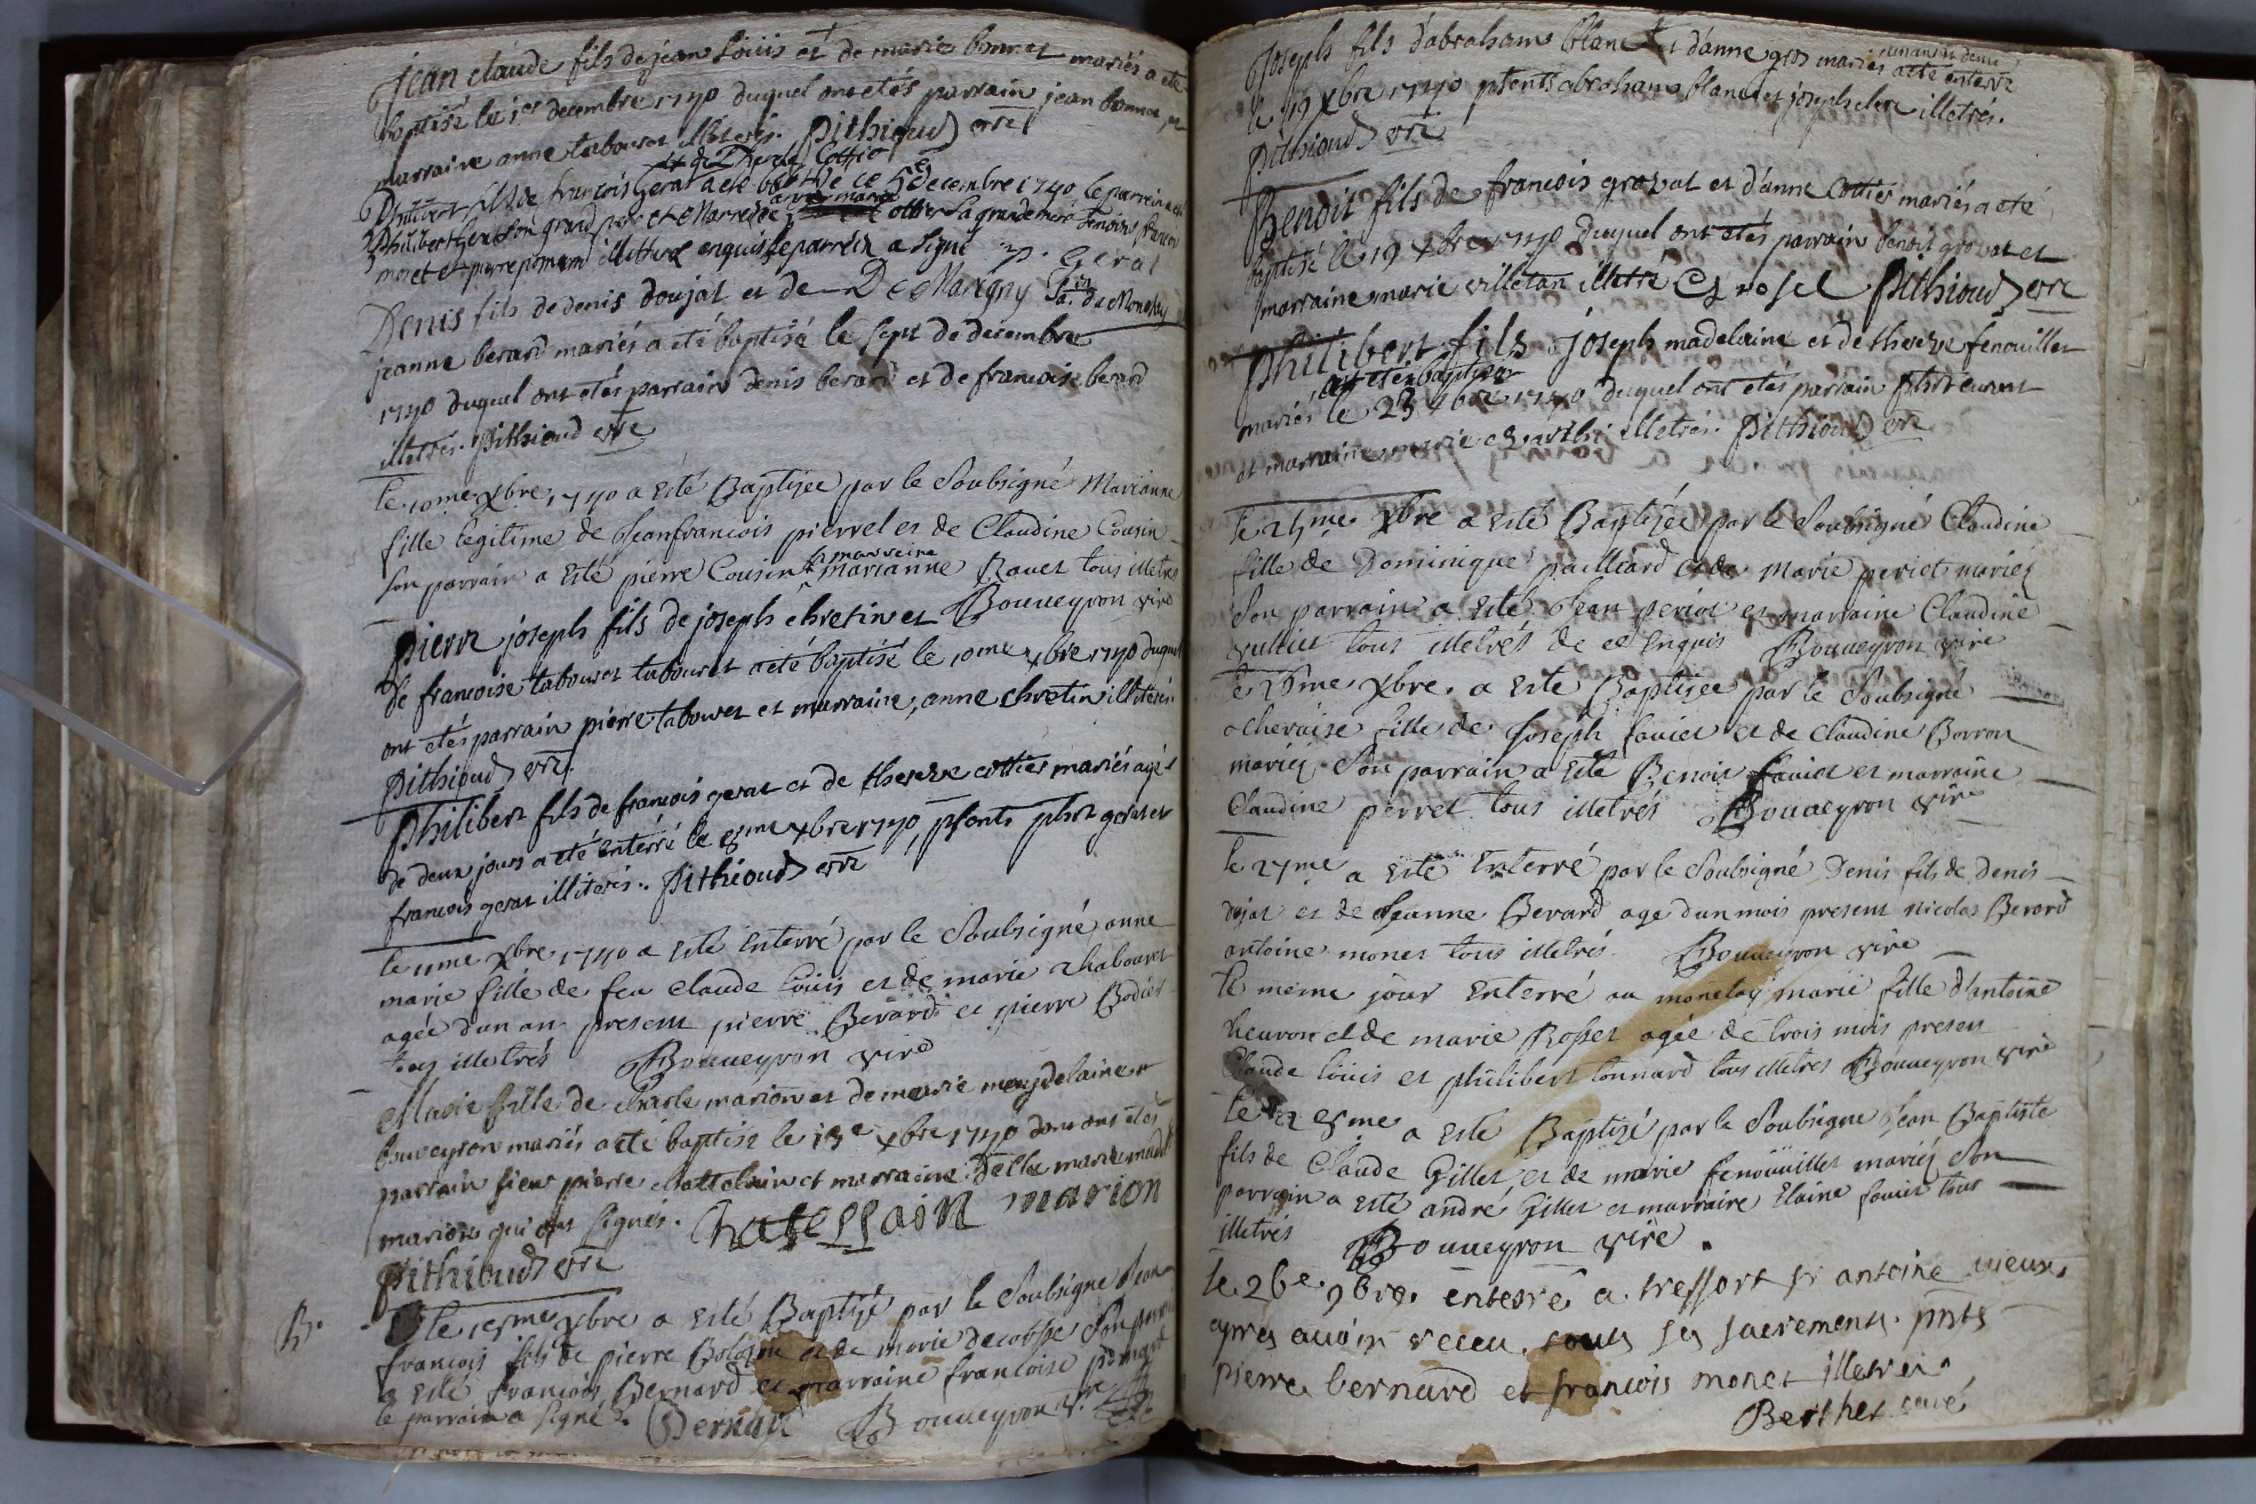 Jean claude fils de jean Loüis et de marie bonnet mariés a eté
baptisé le 1er decembre 1740 duquel ont etés parrain jean bonnet, et
marraine anne tabouret illiterés. Pithioud vre
et de Therese Cottio
Philibert fils de francois Gerat a eté bbtisé ce 5e decembre 1740 le parrein a eté
Philibert Gerat son grand pere et Marreine ottier sa grandemere temoins francois
moret et pierre illitere enquis le parrein a signé p. Gerat
Denis fils de denis doujat et de De Marigny Sa. de Monetay
jeanne berard mariés a eté baptisé le sept de decembre
1740 duquel ont etés parrain denis berard et de francoise berard
illetrés. Pithioud vre
le 10me Xbre 1740 a esté Baptizée par le Soubsigné Marianne
fille legitime de Jeanfrancois pierrel et de Claudine Cousin
son parrain a esté pierre Cousin & marreine marianne Bouet tous illetrés
Bouueyron vire
pierre joseph fils de joseph chretin et
de francoise tabouret tabouret a eté baptisé le 10me xbre 1740 duquel
ont etés parrain pierre tabouret et marraine, anne chretin illiterés
Pithioud vre.
Philibert fils de francois gerat et de thereze cottier mariés agé
de deux jours a eté enterré le 8me xbre 1740, psents phbt gerat et
francois gerat illiterés. Pithioud vre
le 11me Xbre 1740 a esté Enterré par le Soubsigné anne
marie fille de feu Claude Loüis et de marie thabouret
agée d'un an present pierre Berard et pierre Bodier
tous illetrés Bouueyron vire
Marie fille de charle marion et de marie magdelaine
bouveyron mariés a eté baptise le 13e xbre 1740 dont ont étés
parrain sieur pierre chattelain et marraine Delle marie
marion qui ont signés. Chatellain marion
Pithioud vre
B.
le 15me Xbre a esté Baptizé par le Soubsigné Jean
francois fils de pierre et de marie decorsse Son parrain
a esté francois Bernard et marraine francoise
le parrain a signé. Bernard Bouueyron v.re
Joseph fils d'abraham blanc et d'anne gros mariés a eté enterré
le 19 Xbre 1740 psents abraham blanc et joseph clerc illetrés.
Pithioud vre
Benoit fils de francois grozat et d'anne cottier mariés a eté
baptisé le 19 xbre 1740 duquel ont etés parrain benoit grozat et
marraine marie villetan illetré Pithioud vre
Philibert fils a joseph madelaine et de thereze fenouillet
a eté baptisé
mariés le 23 xbre 1740 duquel ont etés parrain
et marraine marie illetrés. Pithioud vre
le 25me. Xbre a esté Baptizée par le Soubsigné Claudine
fille de Dominique pailliard et de Marie periet mariéz
Son parrain a esté Jean periet et marraine Claudine
vulliet tous illetrés de ce Enquis Bouueyron vire
le 25me Xbre. a esté Baptizée par le Soubsigné
theraise fille de Joseph fauiet et de Claudine Borron
mariéz. Son parrain a esté Benoit fauiet et marraine
Claudine perret tous illetrés Bouueyron vire
le 27me a esté Enterré par le Soubsigné Denis fils de denis
dojat et de Jeanne Berard agé dun mois present nicolas Berard
antoine monet tous illetrés. Bouueyron vire
le meme jour Enterré au monetay marie fille d'antoine
heuron et de marie Rosset agée de trois mois present
Claude Loüis et philibert tonnard tous illetrés Bouueyron vire
le 28me a esté Baptizé par le Soubsigné Jean Baptiste
fils de Claude Gillet et de marie fenoüillet mariéz Son
parrain a esté andré Gillet et marraine Elaine fauiet tous
illetrés Bouueyron vire.
le 26e. 9bre. enterré a tressort sr antoine uieux,
apres auoir receu tous ses sacrements. pnts
pierre bernard et francois monet illetrés
Berthet curé